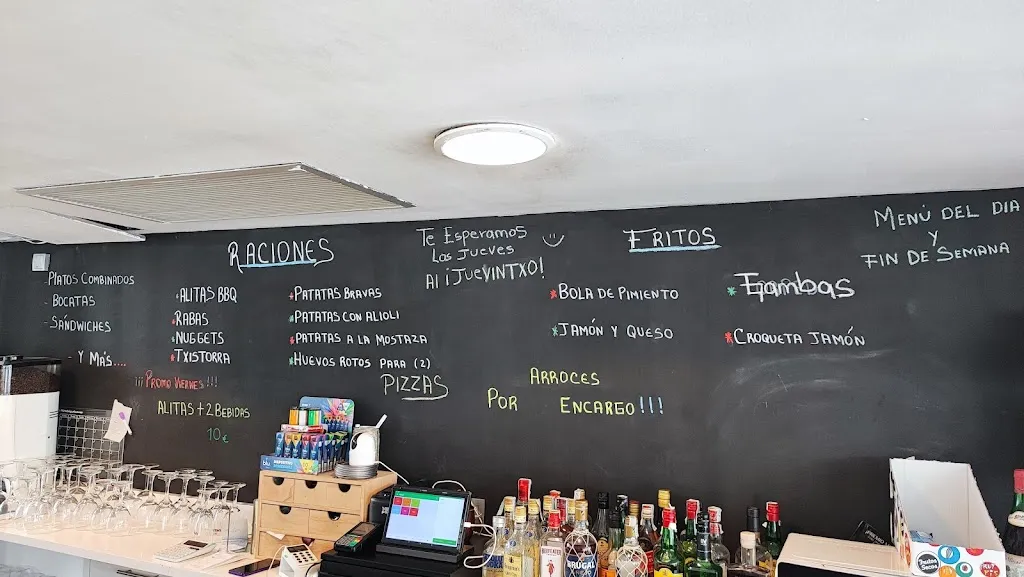 PLATOS COMBINADOS
- BOCATAS
- SÁNDWICHES
- Y MÁS....
RACIONES
*ALITAS BBQ
*RABAS
*NUGGETS
*TXISTORRA
*PATATAS BRAVAS
*PATATAS CON ALIOLI
*PATATAS A LA MOSTAZA
*HUEVOS ROTOS PARA (2)
PIZZAS
¡¡¡ PROMO VIERNES!!!
ALITAS + 2 BEBIDAS
10€
Te Esperamos
Los Jueves
Al ¡JUEVINTXO!
FRITOS
*BOLA DE PIMIENTO
*JAMÓN Y QUESO
*Gambas
*CROQUETA JAMÓN
ARROCES
POR ENCARGO!!!
MENÚ DEL DIA
Y
FIN DE SEMANA
blu
BRUGAL